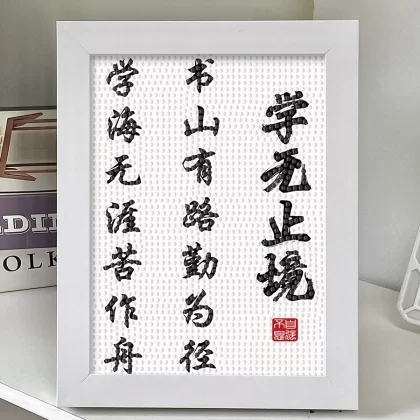 学无止境
书山有路勤为径
学海无涯苦作舟
自强
不息
DI
OLK